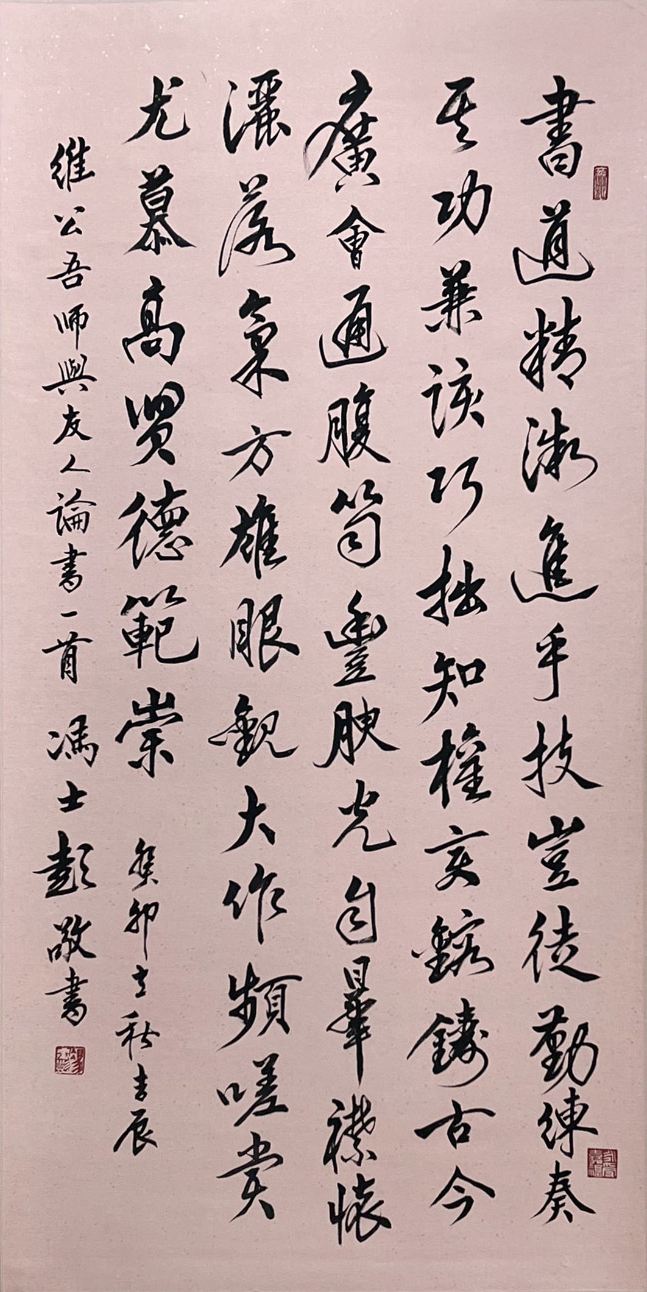 書道精微進乎技豈徒勤練奏
其功兼該巧拙知權變鎔鑄古今
廣會通腹笥豐腴光自曅襟懷
灑落氣方雄眼觀大作頻嗟賞
尤慕高賢德範崇 癸卯立秋吉辰
維公吾師與友人論書一首 馮士彭敬書